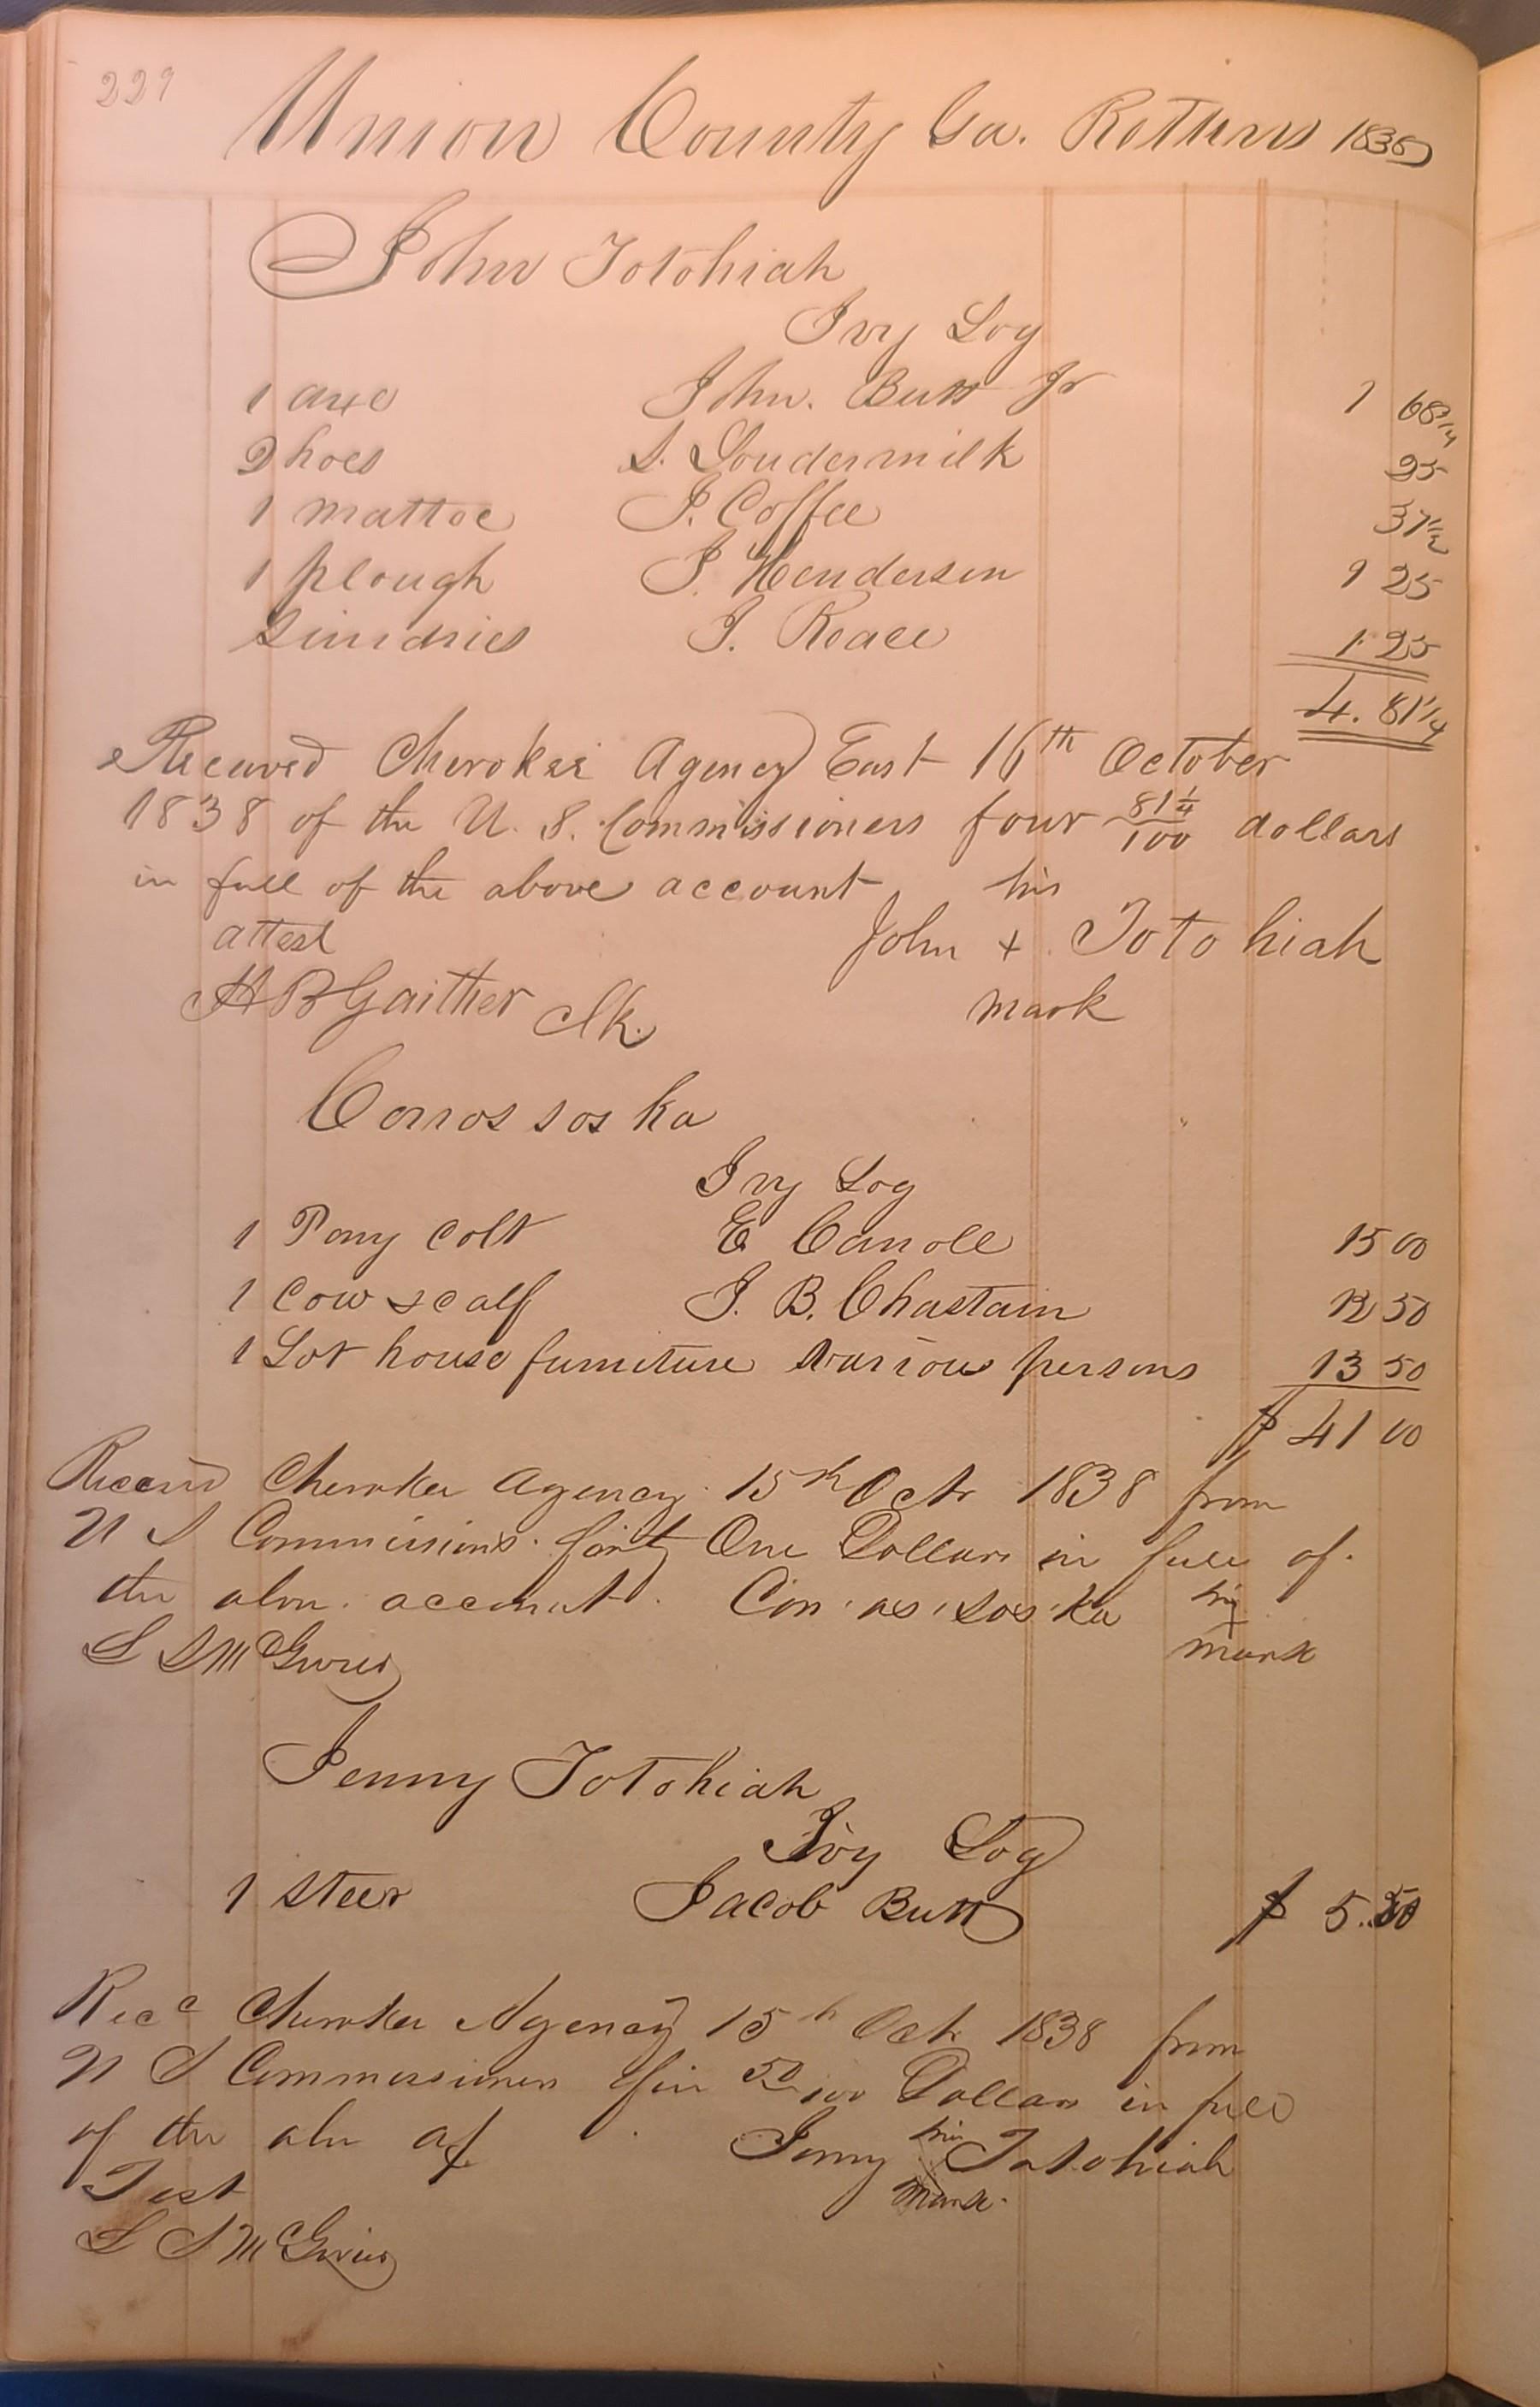 229
Union County Ga. Returns 1838
John Totohiah
Ivy Log
1 axe John. Butt Jr 1 68 3/4
2 hoes S. Loudermilk 25
1 mattoc J. Coffee 37 1/2
1 plough J. Henderson 1 25
Sundries J. Reace 1.25
4. 81 1/4
Received Cherokee Agency East 16th October
1838 of the U. S. Commissioners four 81 1/4/100 dollars
in full of the above account his
attest John + Totohiah
H B Gaither Clk. mark
Conossoska
Ivy Log
1 Pony colt E Canole 15 00
1 Cow & calf J. B. Chastain 12 50
1 Lot house furniture various persons 13 50
$ 41 00
Recevd Cherokee Agency 15th Octr 1838 from
U S Commissions forty One Dollars in full of
the above account. Con.as.sos.ka his
mark
Jenny Totohiah
Ivy Log
1 steer Jacob Butt $ 5..50
Recd Cherokee Agency 15th Octr 1838 from
U S Commissioners five 50/100 Dollars in full
of the abv a/c Jenny his x Totohiah
Test mark